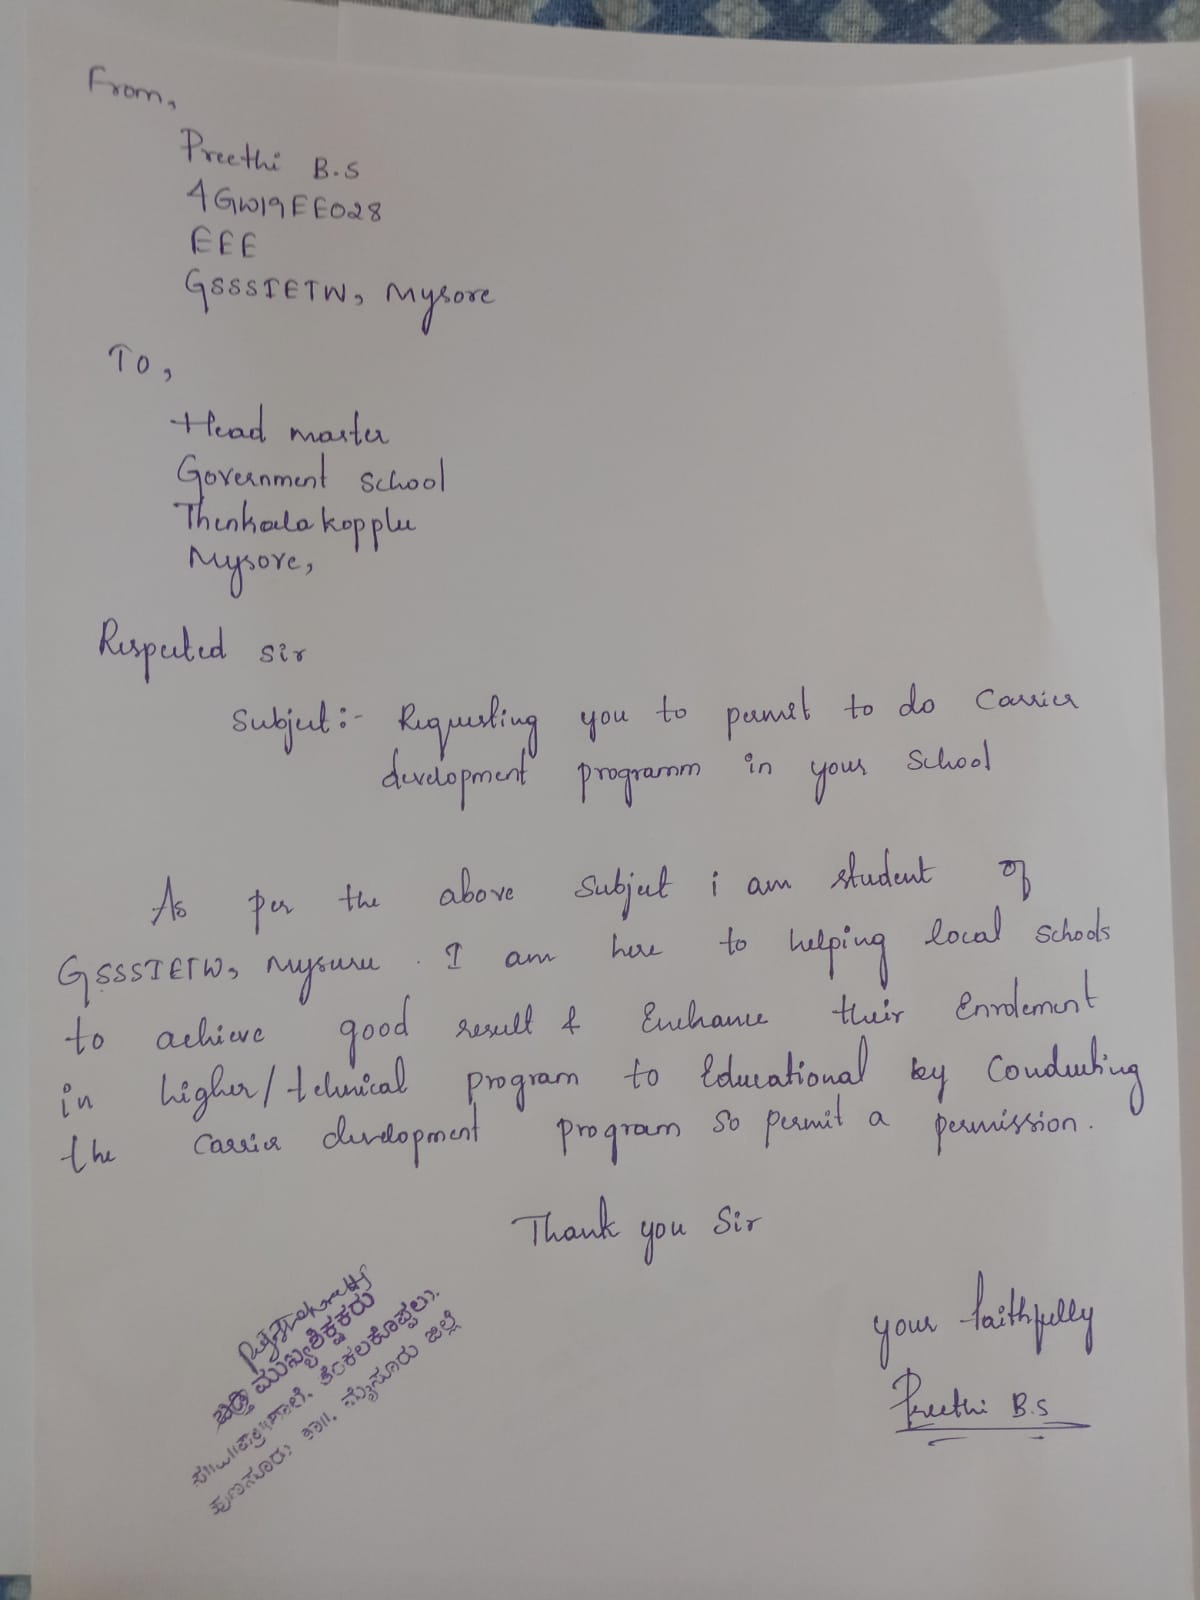 From,
Preethi B.S
4GW19EE028
EEE
GSSSIETW, Mysore
To,
Head master
Government School
Thenkala kopplu
Mysore,
Respected sir
Subject:- Requesting you to permit to do Carrier
development programm in your School
As per the above Subject i am student of
GSSSIETW, Mysuru . I am here to helping local schools
to achieve good result & Enchance their Enrolement
in higher/technical program to Educational by Conducting
the carrier development program so permit a permission.
Thank you Sir
your faithfully
Preethi B.S
ಮುಖ್ಯಶಿಕ್ಷಕರು
ತೆಂಕಲಕೊಪ್ಪಲು.
ಹುಣಸೂರು ತಾ||. ಮೈಸೂರು ಜಿಲ್ಲೆ